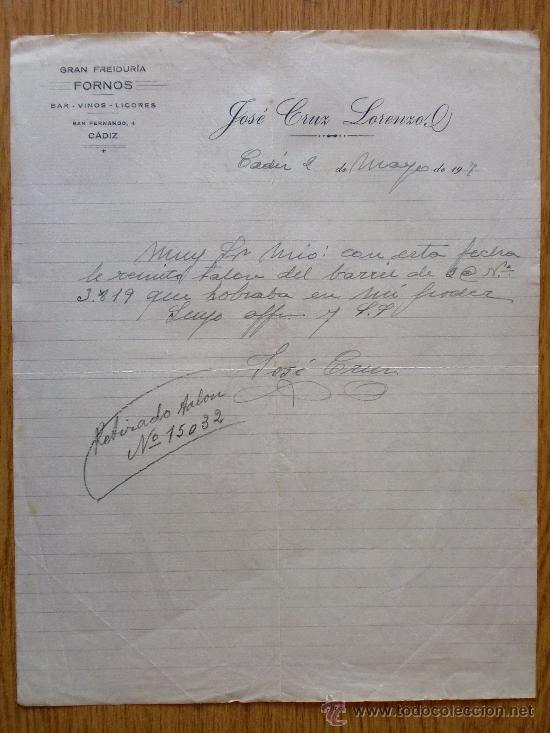 GRAN FREIDURÍA
FORNOS
BAR - VINOS - LICORES
SAN FERNANDO, 4
CÁDIZ
José Cruz Lorenzo
Cadiz 2 de Mayo de 19
Muy Sr Mio: con esta fecha
le remito talon del barril de 2@ Nº
3.819 que hobraba en mi poder
Suyo affm y S.S
José Cruz
Retirado talon
Nº 15032
todocoleccion
© www.todocoleccion.net